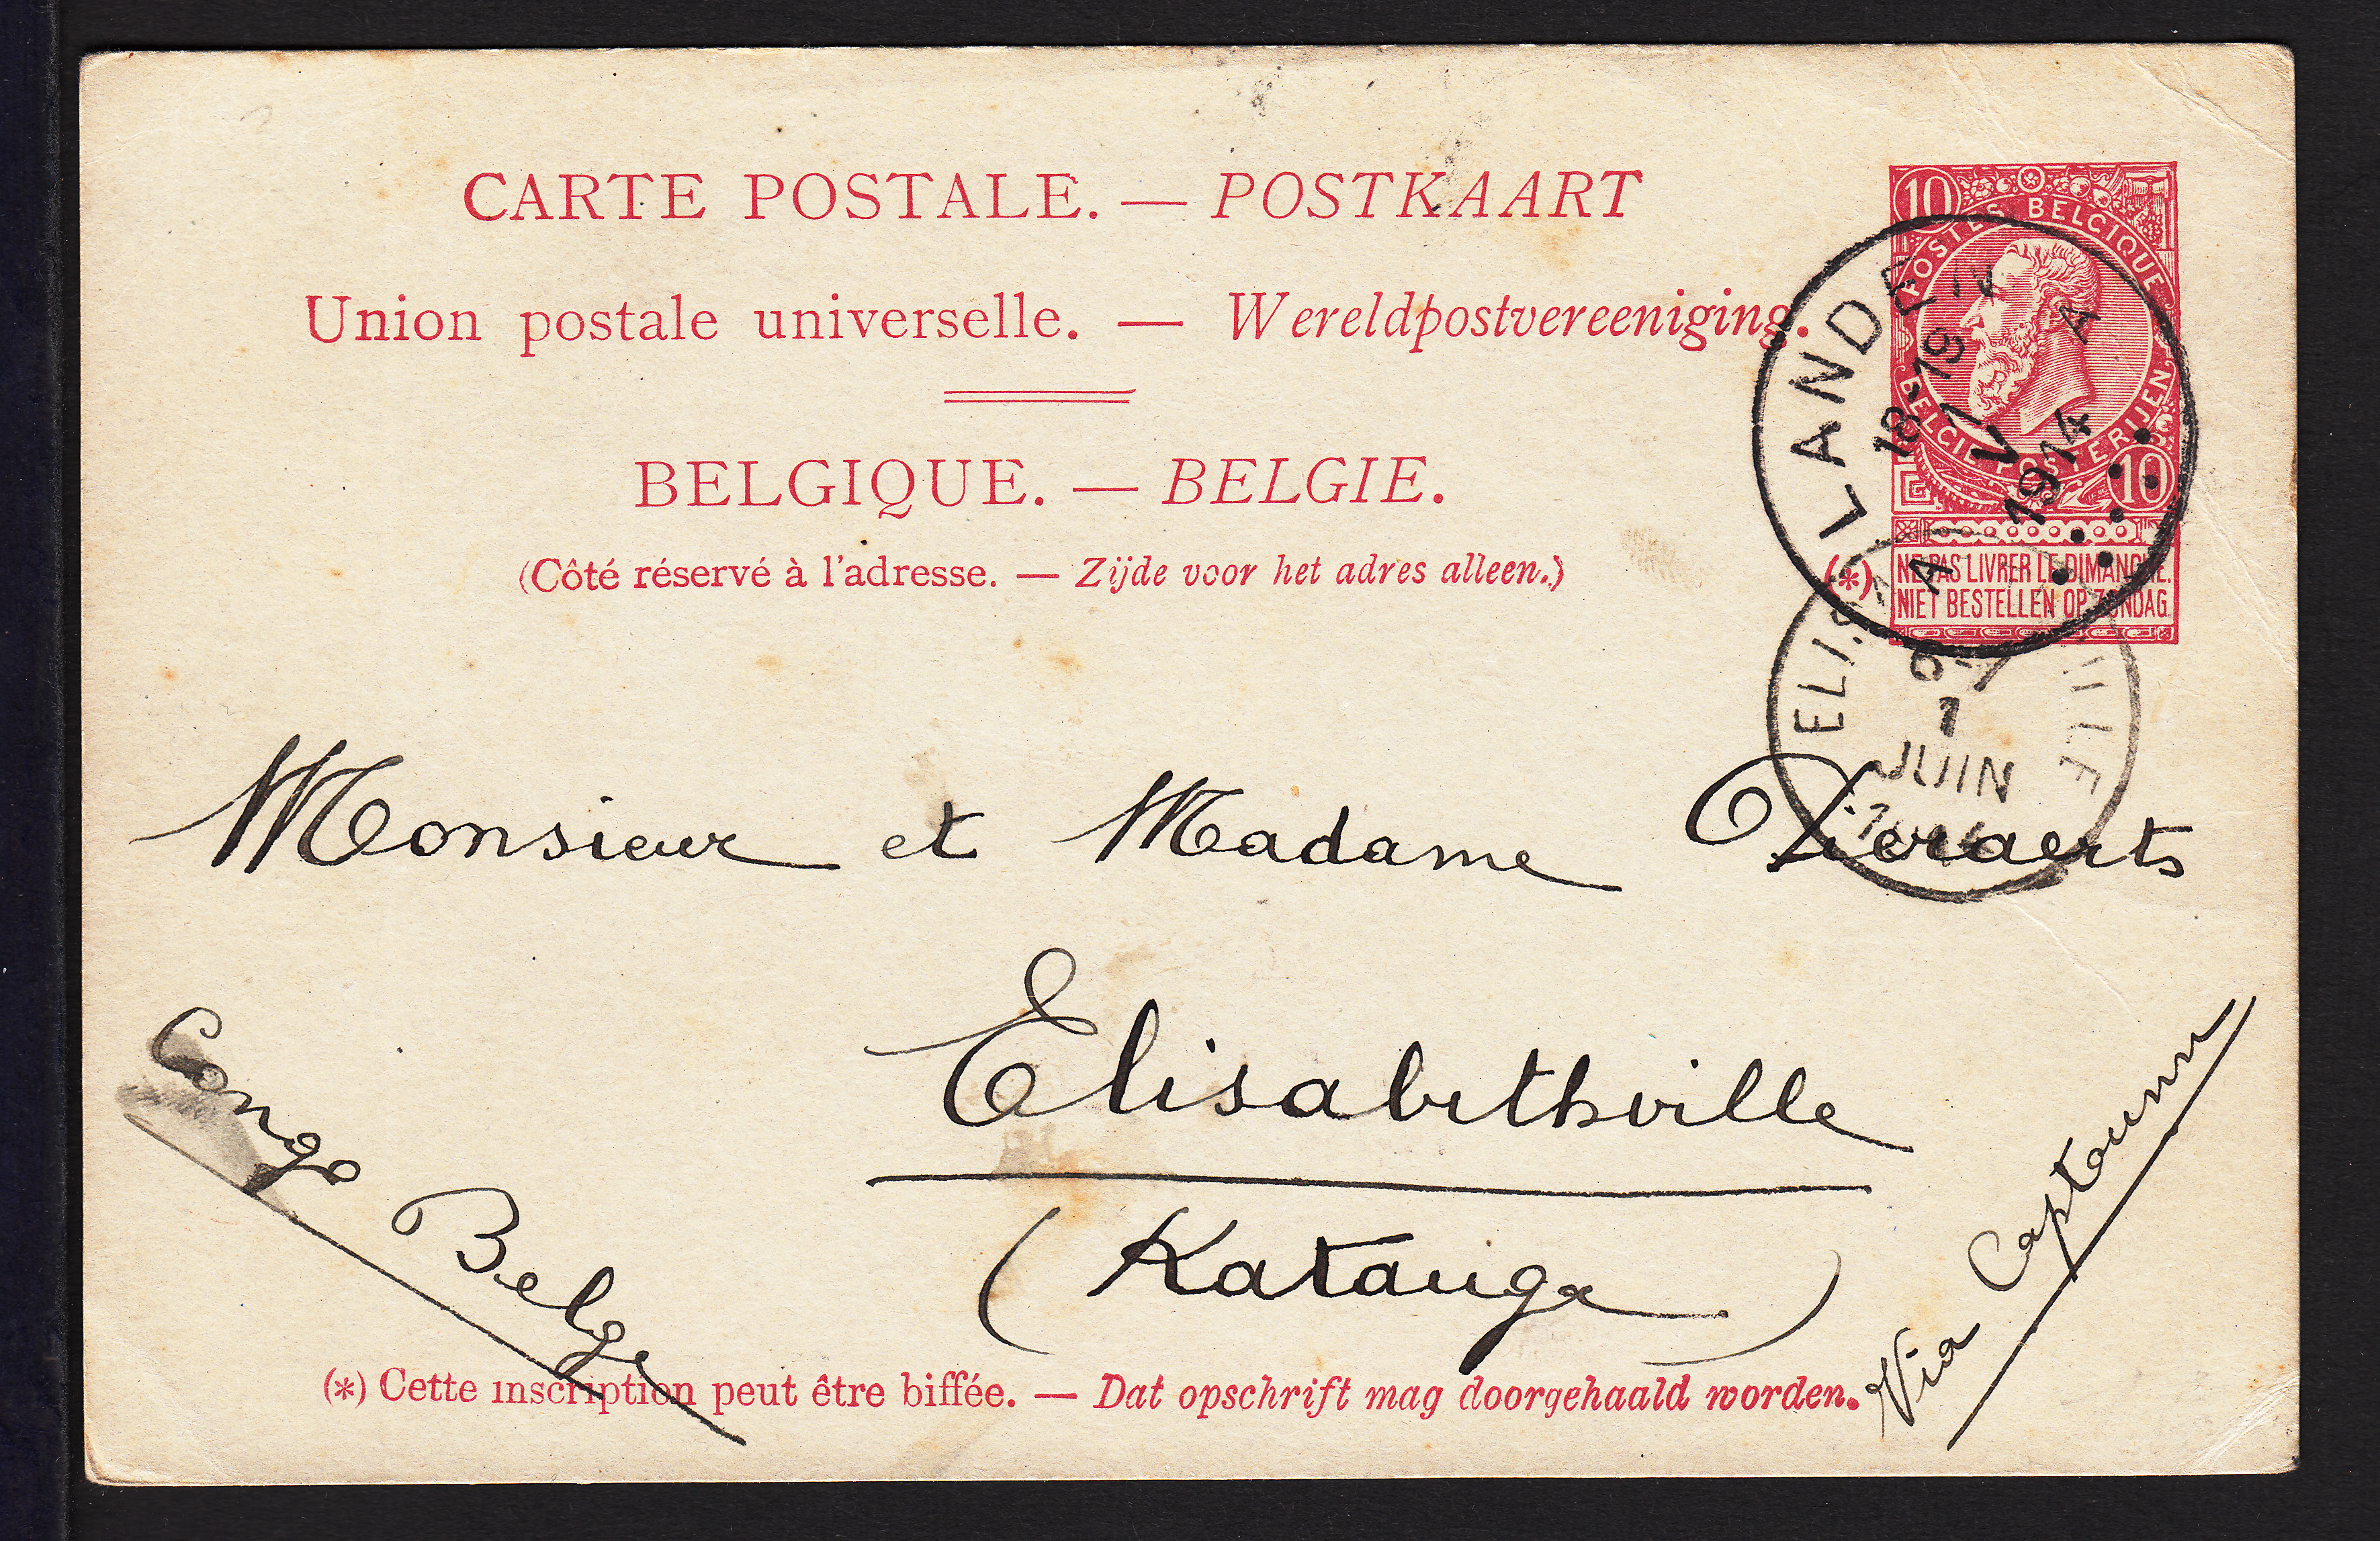 CARTE POSTALE. — POSTKAART
Union postale universelle. — Wereldpostvereeniging.
BELGIQUE. — BELGIE.
(Côté réservé à l'adresse. — Zijde voor het adres alleen.)
10
POSTES BELGIQUE
BELGIE POSTERIJEN
10
(*) NE PAS LIVRER LE DIMANCHE.
NIET BESTELLEN OP ZONDAG
LANDEN
18-19
1 V
1914
A
6-7
1
JUIN
Monsieur et Madame
Elisabethville
(Katanga)
Congo Belge
Via Captown
(*) Cette inscription peut être biffée. — Dat opschrift mag doorgehaald worden.